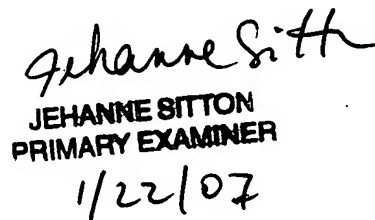 Jehanne Sitton
JEHANNE SITTON
PRIMARY EXAMINER
1/22/07